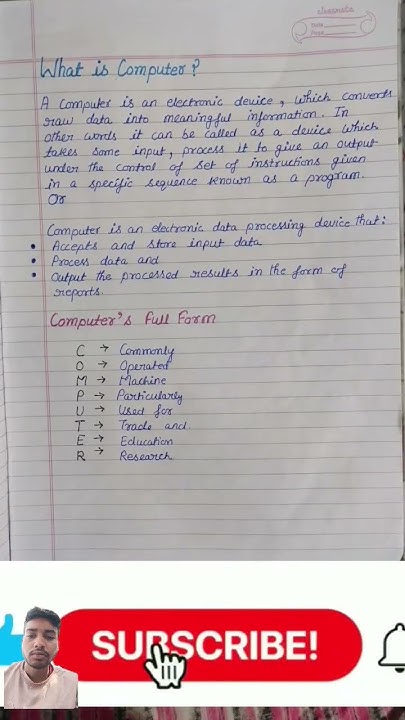 What is Computer?
A Computer is an electronic device, which converts
raw data into meaningful information. In
other words it can be called as a device which
takes some input, process it to give an output
under the control of set of instructions given
in a specific sequence known as a program.
Or
Computer is an electronic data processing device that:
• Accepts and store input data
• Process data and
• Output the processed results in the form of
reports.
Computer's Full Form
C → Commonly
O → Operated
M → Machine
P → Particularly
U → Used for
T → Trade and
E → Education
R → Research
SUBSCRIBE!